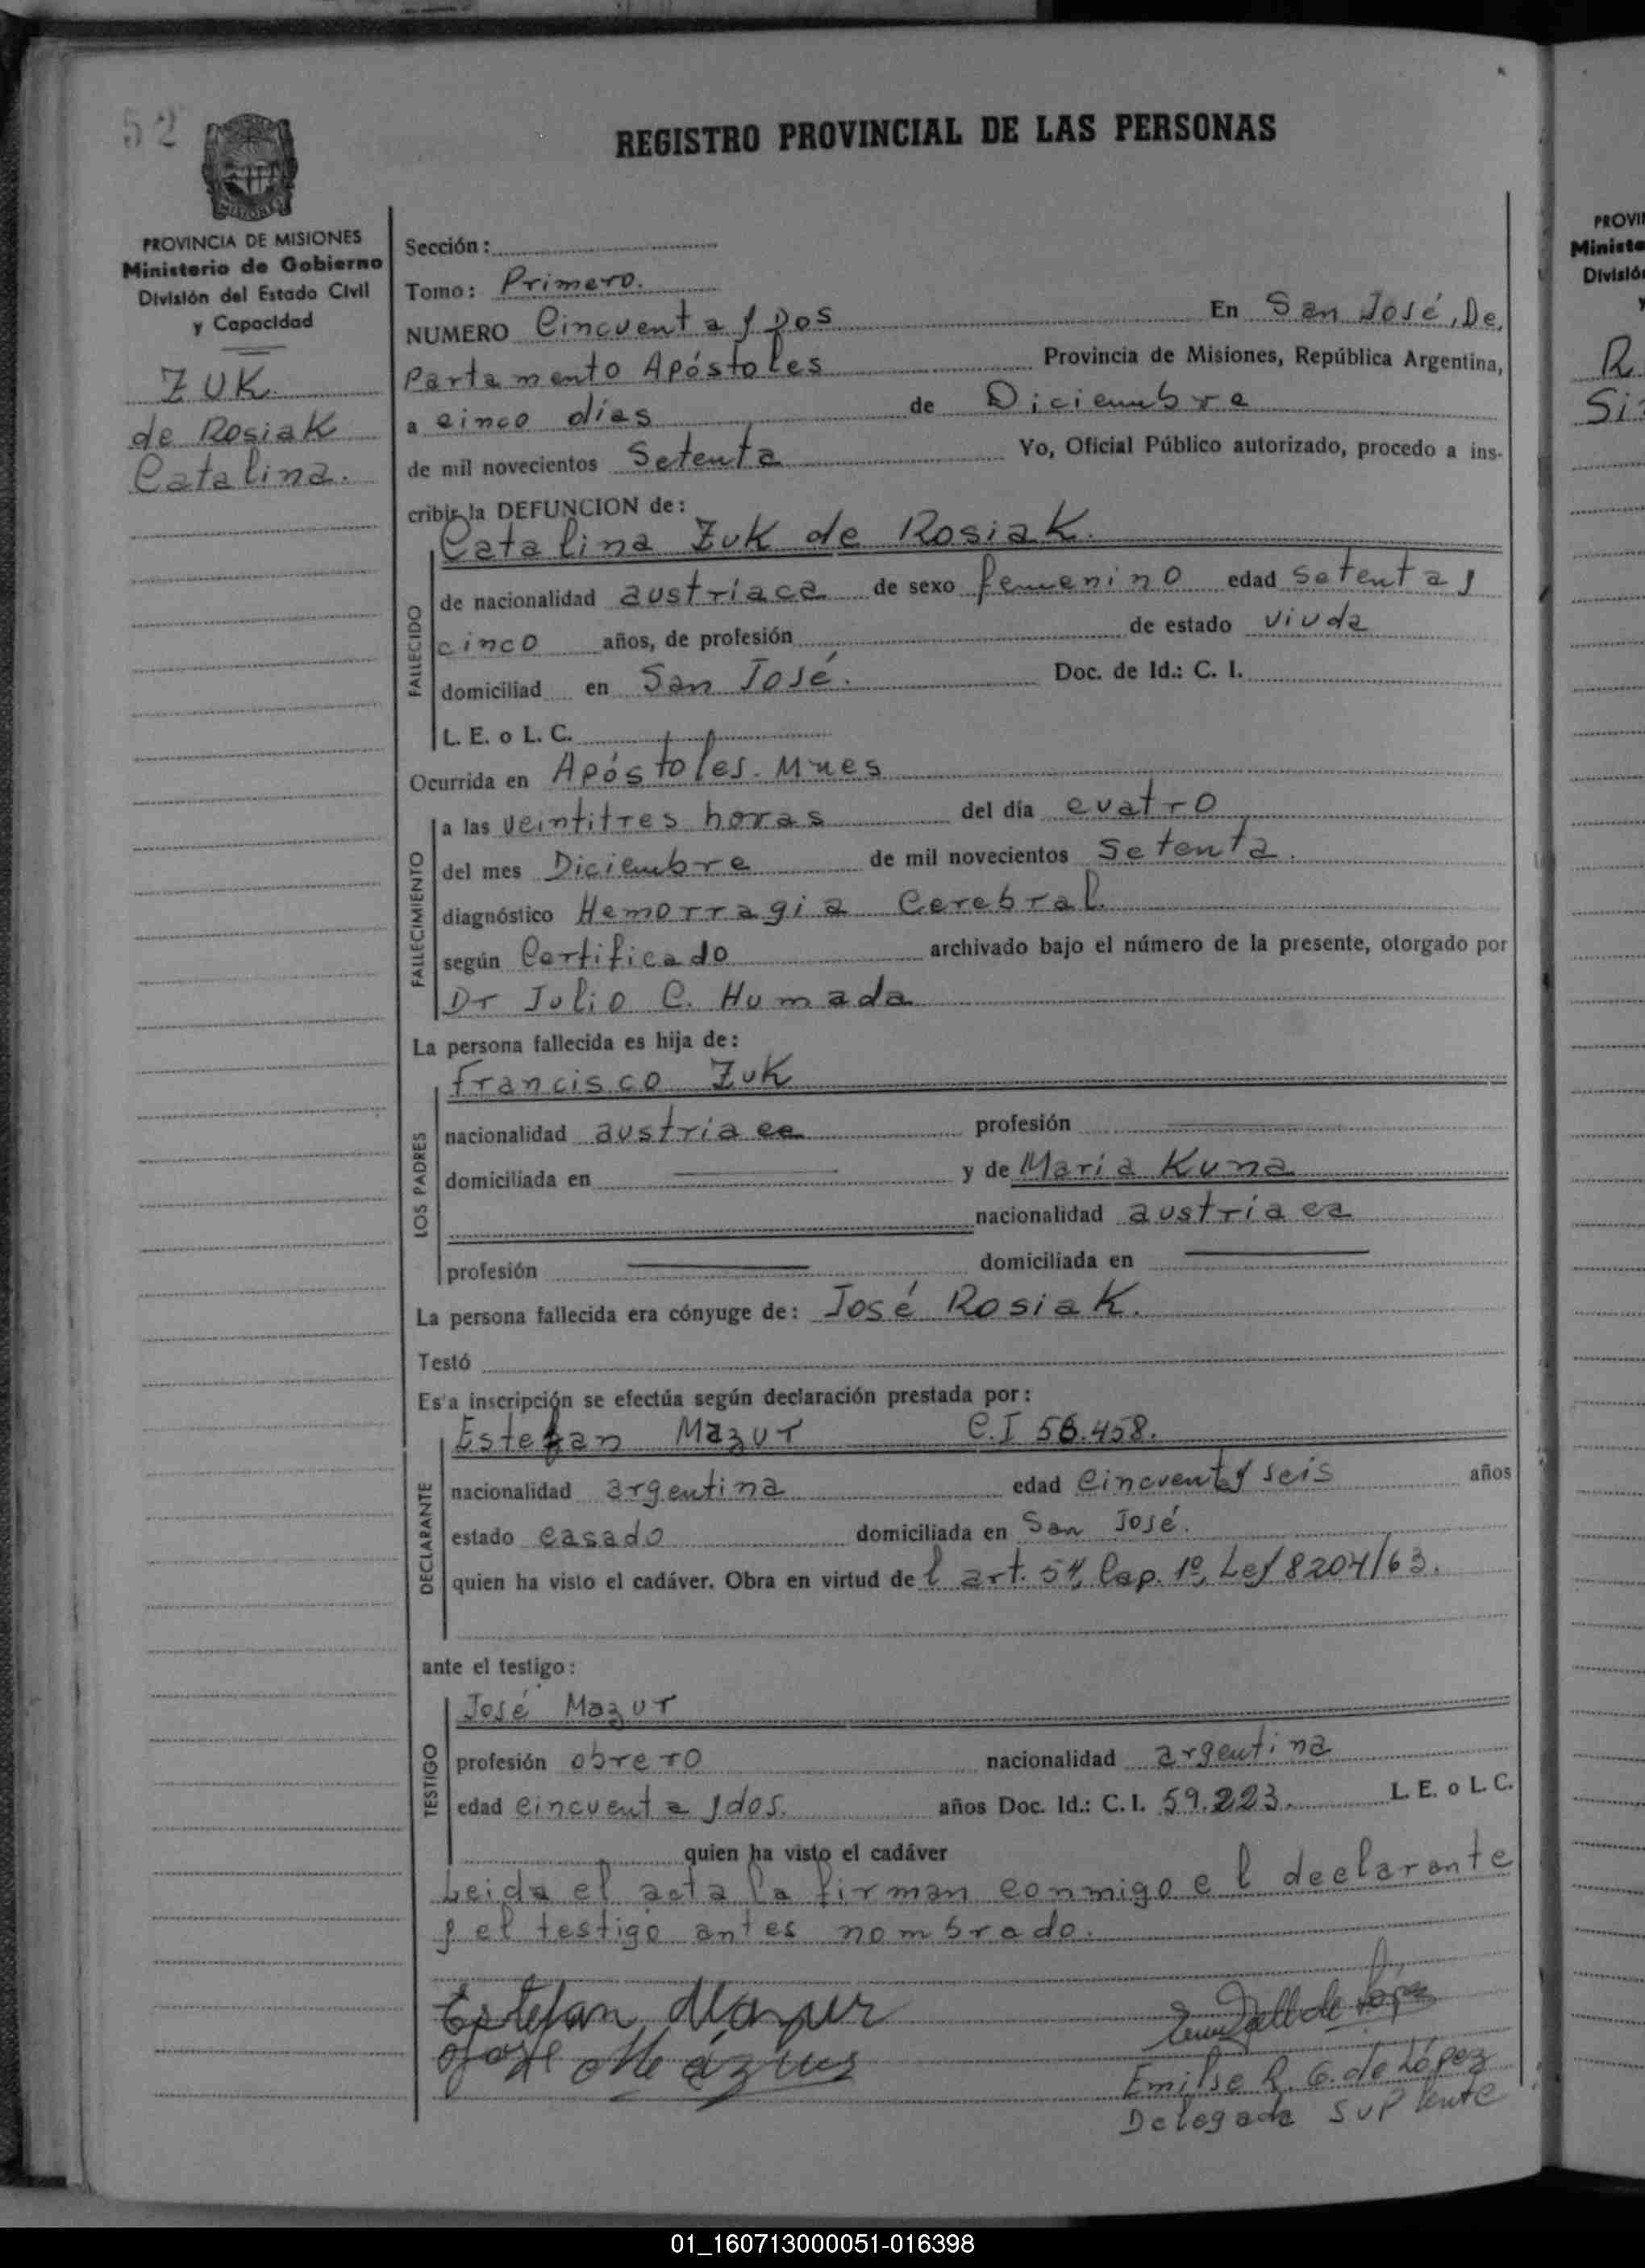 52
REGISTRO PROVINCIAL DE LAS PERSONAS
MISIONES
PROVINCIA DE MISIONES
Ministerio de Gobierno
División del Estado Civil
y Capacidad
ZUK
de Rosiak
Catalina.
Sección:
Tomo: Primero.
NUMERO Cincuenta y Dos En San José, De,
Partamento Apóstoles Provincia de Misiones, República Argentina,
a cinco días de Diciembre
de mil novecientos Setenta Yo, Oficial Público autorizado, procedo a ins-
cribir la DEFUNCION de:
Catalina Zuk de Rosiak.
FALLECIDO
de nacionalidad austríaca de sexo femenino edad setenta y
cinco años, de profesión de estado viuda
domiciliad en San José. Doc. de Id.: C. I.
L. E. o L. C.
Ocurrida en Apóstoles. Mnes
FALLECIMIENTO
a las veintitres horas del día cuatro
del mes Diciembre de mil novecientos Setenta.
diagnóstico Hemorragia Cerebral.
según Certificado archivado bajo el número de la presente, otorgado por
Dr Julio C. Humada
La persona fallecida es hija de:
Francisco Zuk
LOS PADRES
nacionalidad austríaco profesión
domiciliada en y de María Kuna
nacionalidad austríaca
profesión domiciliada en
La persona fallecida era cónyuge de: José Rosiak.
Testó
Es'a inscripción se efectúa según declaración prestada por:
Estefan Mazur C.I 56.458.
DECLARANTE
nacionalidad argentina edad cincuenta y seis años
estado casado domiciliada en San José.
quien ha visto el cadáver. Obra en virtud de l art. 54, Cap. 1º, Ley 8204/63.
ante el testigo:
José Mazur
TESTIGO
profesión obrero nacionalidad argentina
edad cincuenta y dos. años Doc. Id.: C. I. 59.223. L. E. o L. C.
quien ha visto el cadáver
Leida el acta la firman conmigo el declarante
y el testigo antes nombrado.
Estefan Mazur
José Mázur
de López
Emilse R. G. de López
Delegada Suplente
PROVI
Ministe
División
y
R
Si
01_160713000051-016398